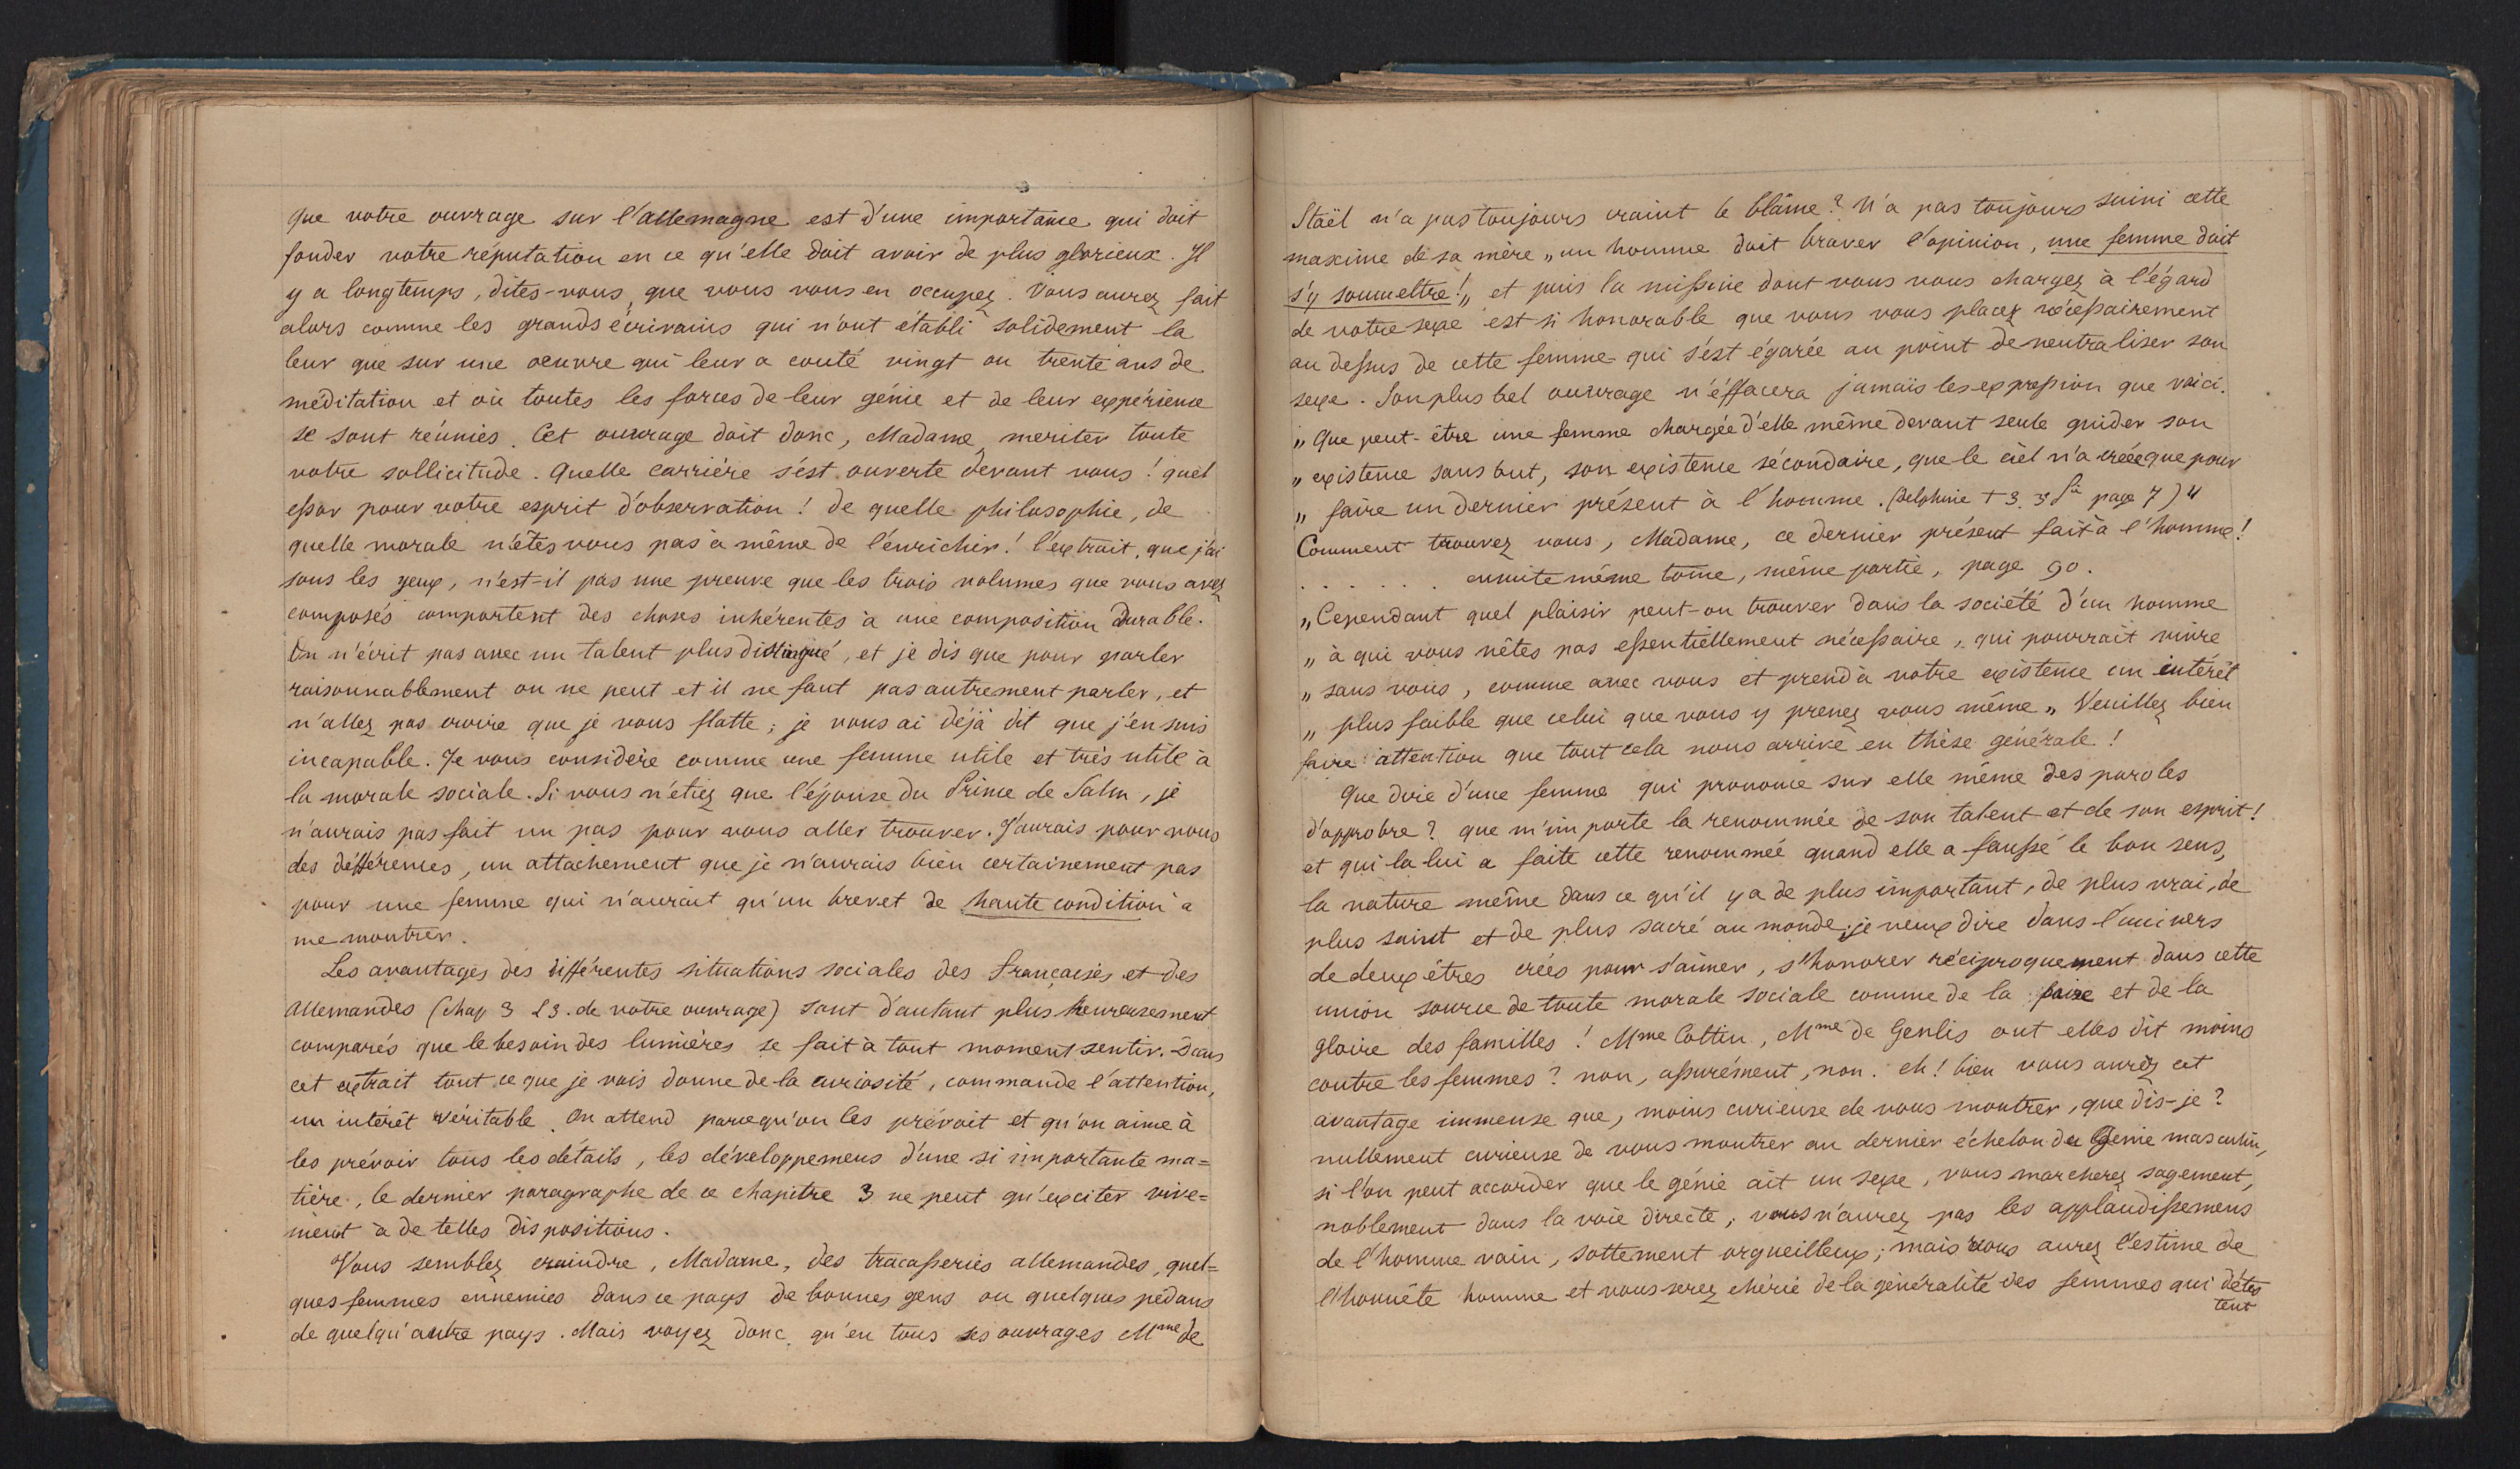 que votre ouvrage sur l'allemagne est d'une importance qui doit
fonder votre réputation en ce qu'elle doit avoir de plus glorieux. Il
y a longtemps, dites-vous, que vous vous en occupez. Vous aurez fait
alors comme les grands écrivains qui n'ont établi solidement la
leur que sur une oeuvre qui leur a couté vingt ou trente ans de
méditation et où toutes les forces de leur génie et de leur expérience
se sont réunies. Cet ouvrage doit donc, Madame, meriter toute
votre sollicitude. Quelle carrière s'est ouverte devant vous ! quel
essor pour votre esprit d'observation ! de quelle philosophie, de
quelle morale n'êtes vous pas à même de l'enrichir ! l'extrait, que j'ai
sous les yeux, n'est-il pas une preuve que les trois volumes que vous avez
composés comportent des choses inhérentes à une composition durable.
On n'écrit pas avec un talent plus distingué, et je dis que pour parler
raisonnablement on ne peut et il ne faut pas autrement parler, et
n'allez pas croire que je vous flatte ; je vous ai déjà dit que j'en suis
incapable. Je vous considère comme une femme utile et très utile à
la morale sociale. Si vous n'étiez que l'épouse du Prince de Salm, je
n'aurais pas fait un pas pour vous aller trouver. J'aurais pour vous
des déférences, un attachement que je n'aurais bien certainement pas
pour une femme qui n'aurait qu'un brevet de haute condition à
me montrer.
Les avantages des différentes situations sociales des françaises et des
allemandes (chap 3 L3. de votre ouvrage) sont d'autant plus heureusement
comparés que le besoin des lumières se fait à tout moment sentir. Dans
cet extrait tout ce que je vois donne de la curiosité, commande l'attention,
un intérêt véritable. On attend parcequ'on les prévoit et qu'on aime à
les prévoir tous les détails, les développemens d'une si importante ma=
tière, le dernier paragraphe de ce chapitre 3 ne peut qu'exciter vive=
ment à de telles dispositions.
Vous semblez craindre, Madame, des tracasseries allemandes, quel=
ques femmes ennemies dans ce pays de bonnes gens ou quelques pédans
de quelqu'autre pays. Mais voyez donc, qu'en tous ses ouvrages Mme de
Staël n'a pas toujours craint le blâme ? N'a pas toujours suivi cette
maxime de sa mère „ un homme doit braver l'opinion, une femme doit
s'y soumettre ! „ et puis la missive dont vous vous chargez à l'égard
de votre sexe est si honorable que vous vous placez nécessairement
au dessus de cette femme qui s'est égarée au point de neutraliser son
sexe. Son plus bel ouvrage n'éffacera jamais les expression que voici.
„ Que peut-être une femme chargée d'elle même devant seule guider son
„ existence sans but, son existence sécondaire, que le ciel n'a créée que pour
„ faire un dernier présent à l'homme. (Delphine t 3. 3e page 7) „
Comment trouvez vous, Madame, ce dernier présent fait à l'homme !
. . . . . . ensuite même tome, même partie, page 90.
„ Cependant quel plaisir peut-on trouver dans la société d'un homme
„ à qui vous n'êtes pas essentiellement nécessaire, qui pourrait vivre
„ sans vous, comme avec vous et prend à votre existence un intérêt
„ plus faible que celui que vous y prenez vous même „ Veuillez bien
faire attention que tout cela nous arrive en thèse générale !
Que dire d'une femme qui prononce sur elle même des paroles
d'approbre ? que m'importe la renommée de son talent et de son esprit !
et qui la lui a faite cette renommée quand elle a faussé le bon sens,
la nature même dans ce qu'il y a de plus important, de plus vrai, de
plus saint et de plus sacré au monde ; je veux dire dans l'univers
de deux êtres créés pour s'aimer, s'honorer réciproquement dans cette
union source de toute morale sociale comme de la paix et de la
gloire des familles ! Mme Cottin, Mme de Genlis ont elles dit moins
contre les femmes ? non, assurément, non. eh ! bien vous aurez cet
avantage immense que, moins curieuse de vous montrer, que dis-je ?
nullement curieuse de vous montrer au dernier échelon du Génie masculin,
si l'on peut accorder que le génie ait un sexe, vous marcherez sagement,
noblement dans la voie directe ; vous n'aurez pas les applaudissemens
de l'homme vain, sottement orgueilleux ; mais vous aurez l'estime de
l'honnête homme et vous serez chérie de la généralité des femmes qui détes
tent